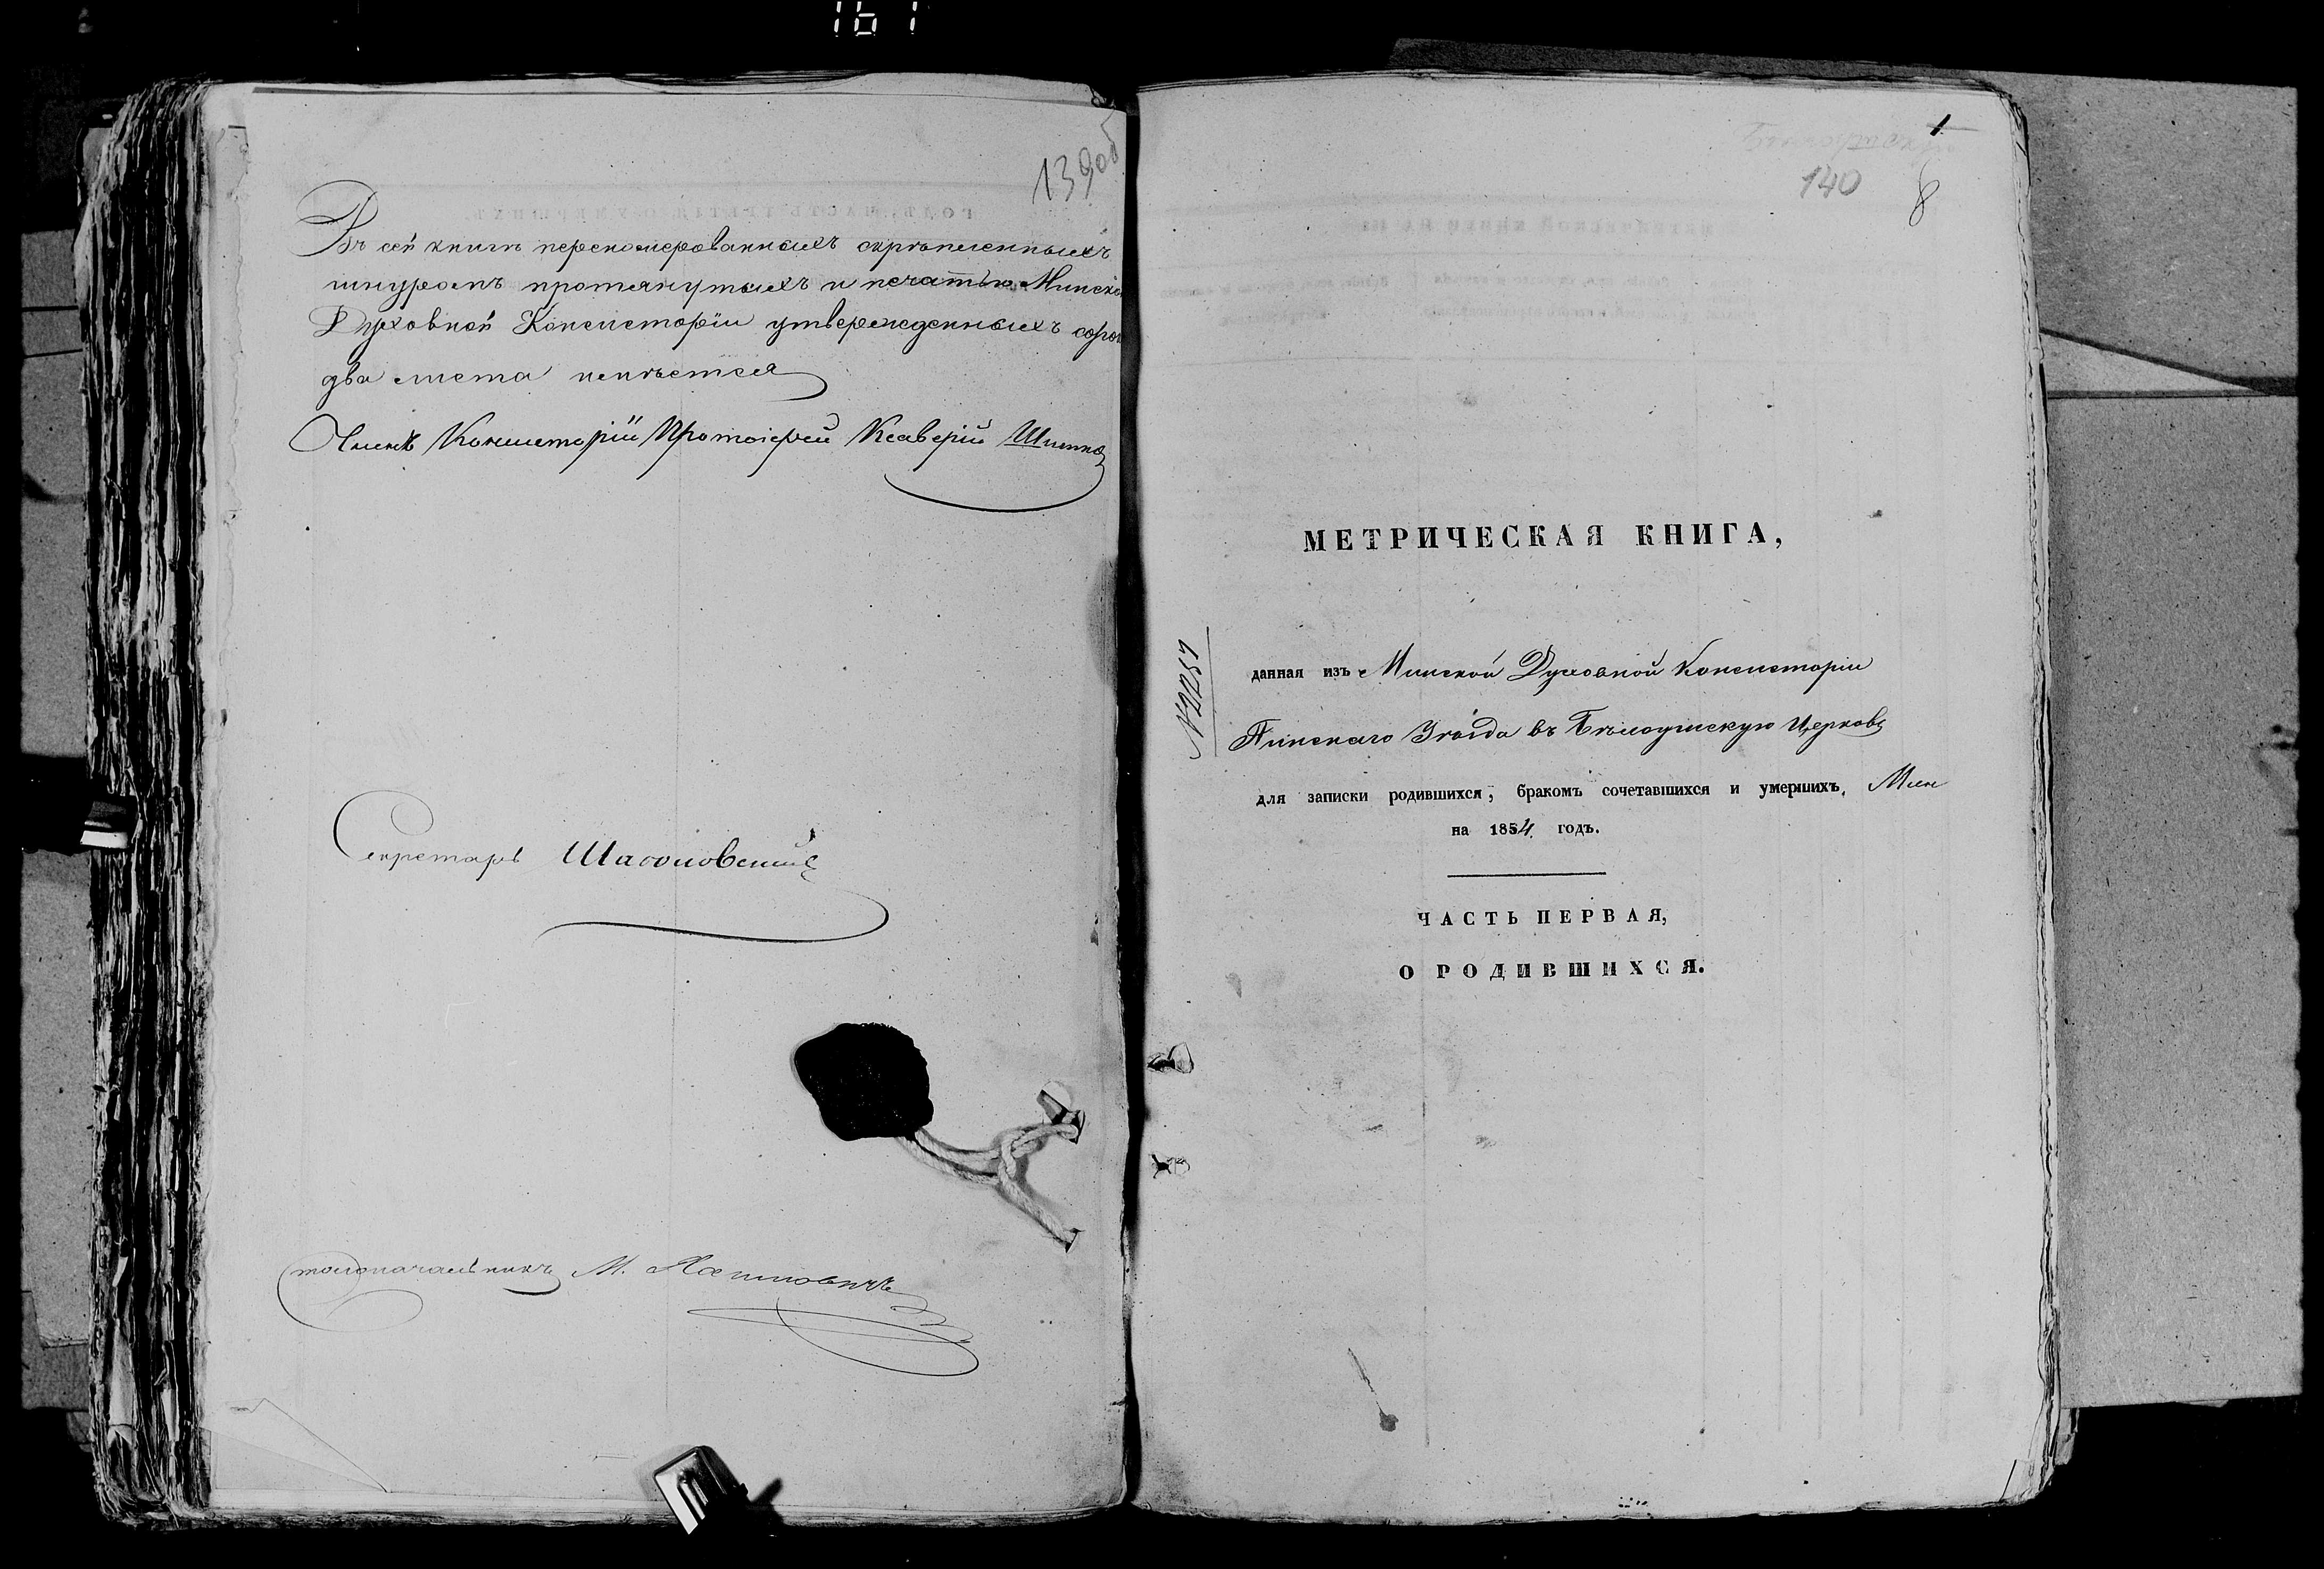 161
139об
Въ сей книгѣ перенумерованныхъ скрѣпленныхъ
шнуромъ протянутыхъ и печатью Минско
Духовной Консисторіи утвержденныхъ соро
два листа имѣется
Членъ Консисторіи Протоіерей Ксаверій
Секретарь
Столоначальникъ М.
1
140
8
МЕТРИЧЕСКАЯ КНИГА,
данная изъ Минской Духовной Консисторіи
Пинскаго Уѣзда въ Бѣлоушскую Церковь
для записки родившихся, бракомъ сочетавшихся и умершихъ,
на 1854 годъ.
ЧАСТЬ ПЕРВАЯ,
О РОДИВШИХСЯ.